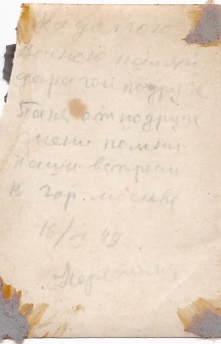 На долгою
вечною память
дарагой подруге
Тане от подруге
помни
Наши встречи
в гор. Москве
16/II 49